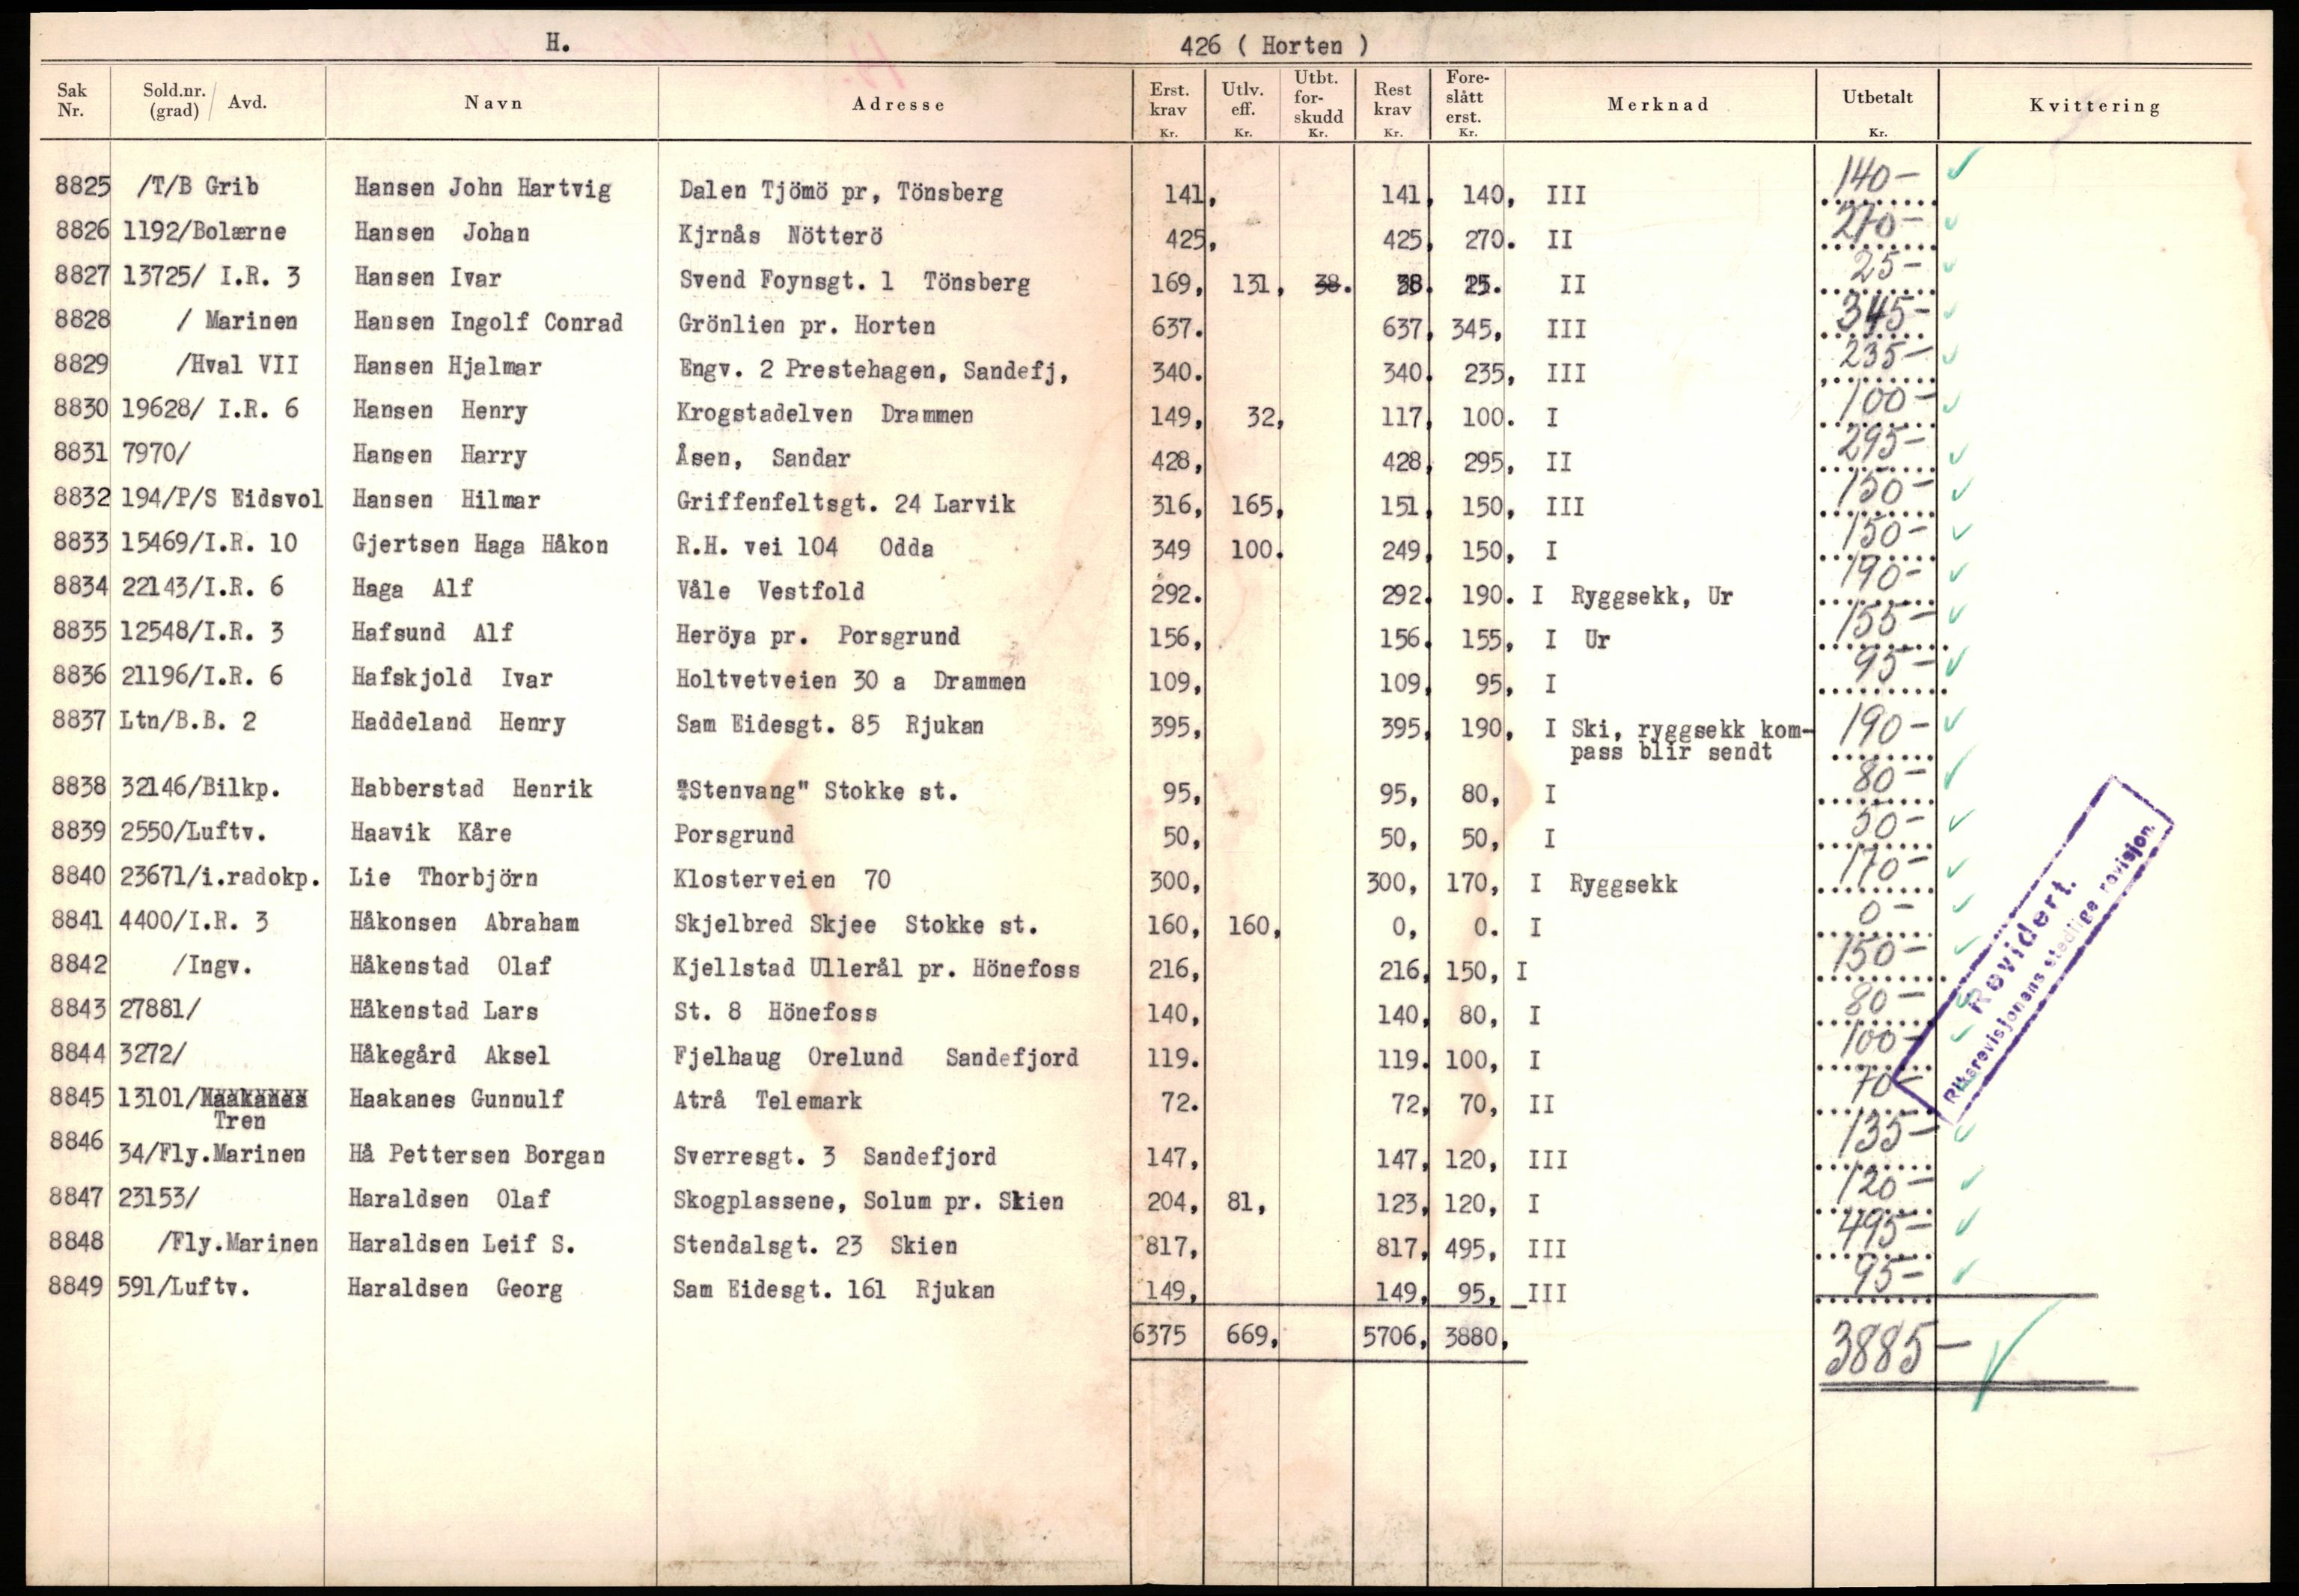 H.
426 ( Horten )
Sak Nr. Sold.nr. (grad) / Avd. Navn Adresse Erst. krav Kr. Utlv. eff. Kr. Utbt. for- skudd Kr. Rest krav Kr. Fore- slått erst. Kr. Merknad Utbetalt Kr. Kvittering
8825 /T/B Grib Hansen John Hartvig Dalen Tjömö pr, Tönsberg 141, 141, 140, III 140-
8826 1192/Bolærne Hansen Johan Kjrnås Nötterö 425, 425, 270. II 270-
8827 13725/ I.R. 3 Hansen Ivar Svend Foynsgt. 1 Tönsberg 169, 131, 38. 38. 25. II 25-
8828 / Marinen Hansen Ingolf Conrad Grönlien pr. Horten 637. 637, 345, III 345-
8829 /Hval VII Hansen Hjalmar Engv. 2 Prestehagen, Sandefj, 340. 340. 235, III 235-
8830 19628/ I.R. 6 Hansen Henry Krogstadelven Drammen 149, 32, 117, 100. I 100-
8831 7970/ Hansen Harry Åsen, Sandar 428, 428, 295, II 295-
8832 194/P/S Eidsvol Hansen Hilmar Griffenfeltsgt. 24 Larvik 316, 165, 151, 150, III 150-
8833 15469/I.R. 10 Gjertsen Haga Håkon R.H. vei 104 Odda 349 100. 249, 150, I 150-
8834 22143/I.R. 6 Haga Alf Våle Vestfold 292. 292. 190. I Ryggsekk, Ur 190-
8835 12548/I.R. 3 Hafsund Alf Heröya pr. Porsgrund 156, 156. 155, I Ur 155-
8836 21196/I.R. 6 Hafskjold Ivar Holtvetveien 30 a Drammen 109, 109, 95, I 95-
8837 Ltn/B.B. 2 Haddeland Henry Sam Eidesgt. 85 Rjukan 395, 395, 190, I Ski, ryggsekk kom- 190-
pass blir sendt
8838 32146/Bilkp. Habberstad Henrik "Stenvang" Stokke st. 95, 95, 80, I 80-
8839 2550/Luftv. Haavik Kåre Porsgrund 50, 50, 50, I 50-
8840 23671/i.radokp. Lie Thorbjörn Klosterveien 70 300, 300, 170, I Ryggsekk 170-
8841 4400/I.R. 3 Håkonsen Abraham Skjelbred Skjee Stokke st. 160, 160, 0, 0. I 0-
8842 /Ingv. Håkenstad Olaf Kjellstad Ullerål pr. Hönefoss 216, 216, 150, I 150-
8843 27881/ Håkenstad Lars St. 8 Hönefoss 140, 140, 80, I 80-
8844 3272/ Håkegård Aksel Fjelhaug Orelund Sandefjord 119. 119. 100, I 100-
8845 13101/Haakanes Haakanes Gunnulf Atrå Telemark 72. 72, 70, II 70-
Tren
8846 34/Fly.Marinen Hå Pettersen Borgan Sverresgt. 3 Sandefjord 147, 147, 120, III 135-
8847 23153/ Haraldsen Olaf Skogplassene, Solum pr. Skien 204, 81, 123, 120, I 120-
8848 /Fly.Marinen Haraldsen Leif S. Stendalsgt. 23 Skien 817, 817, 495, III 495-
8849 591/Luftv. Haraldsen Georg Sam Eidesgt. 161 Rjukan 149, 149, 95, III 95-
6375 669, 5706, 3880, 3885-
Revidert.
Riksrevisjonens stedlige revisjon.